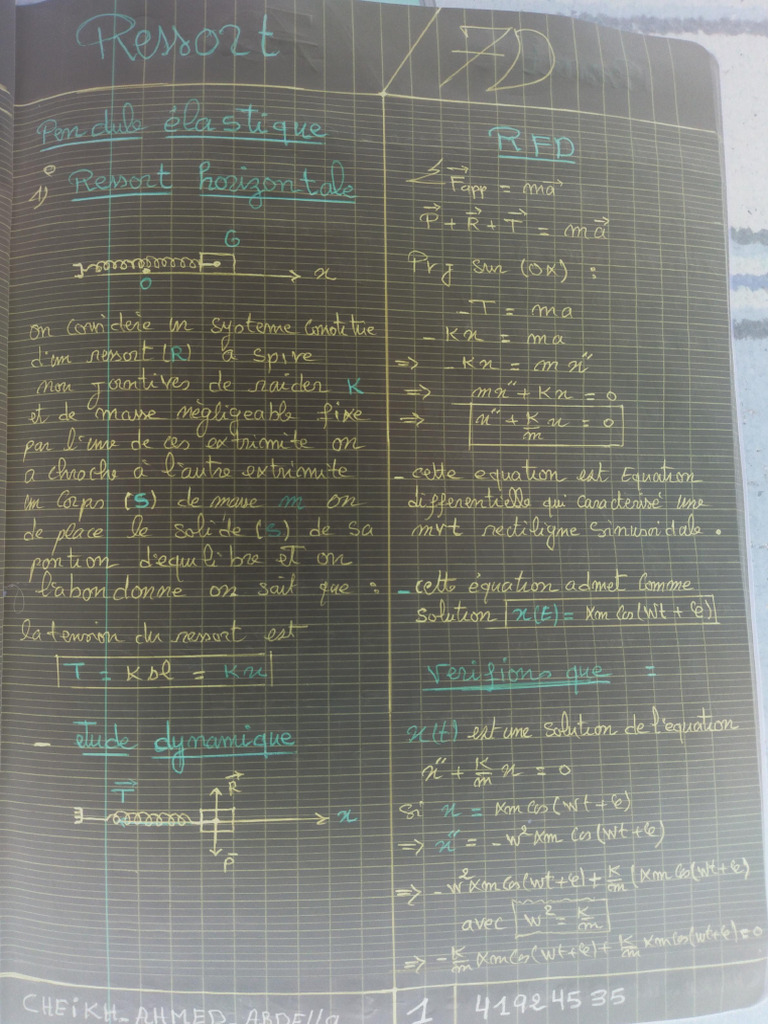 Ressort / 7D
Pendule élastique
1) Ressort horizontale
G
O
x
on considere un systeme constitue
d'un ressort (R) a spire
non jointives de raider K
et de masse négligeable fixe
par l'une de ces extrimite on
a chroche à l'autre extrimite
un corps (S) de masse m on
de place le solide (S) de sa
position d'equilibre et on
l'abondonne on sait que :
la tension du ressort est
T = KΔl = Kx
- etude dynamique
T⃗
R⃗
x
P⃗
RFD
ΣF⃗app = ma⃗
P⃗ + R⃗ + T⃗ = ma⃗
Prj sur (OX) :
-T = ma
-Kx = ma
⇒ -Kx = mx''
⇒ mx'' + Kx = 0
⇒ x'' + K/m x = 0
- cette equation est Equation
differentielle qui caracterisé une
mvt rectiligne sinusoidale.
- cette équation admet comme
solution x(t) = Xm cos(Wt + φ)
Verifions que :
x(t) est une solution de l'equation
x'' + K/m x = 0
Si x = Xm cos(Wt + φ)
⇒ x'' = -W² Xm cos(Wt + φ)
⇒ -W² Xm cos(Wt + φ) + K/m (Xm cos(Wt + φ)
avec W² = K/m
⇒ -K/m Xm cos(Wt + φ) + K/m Xm cos(Wt + φ) = 0
CHEIKH_AHMED_ABDELLA 1 41924535